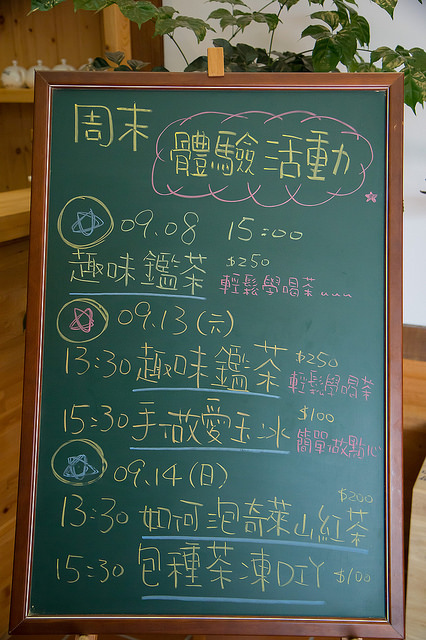 周末 體驗活動
09.08 15:00
趣味鑑茶 $250
輕鬆學喝茶
09.13 (六)
13:30 趣味鑑茶 $250
輕鬆學喝茶
15:30 手做愛玉冰 $100
簡單做點心
09.14 (日)
$200
13:30 如何泡奇萊山紅茶
15:30 包種茶凍DIY $100